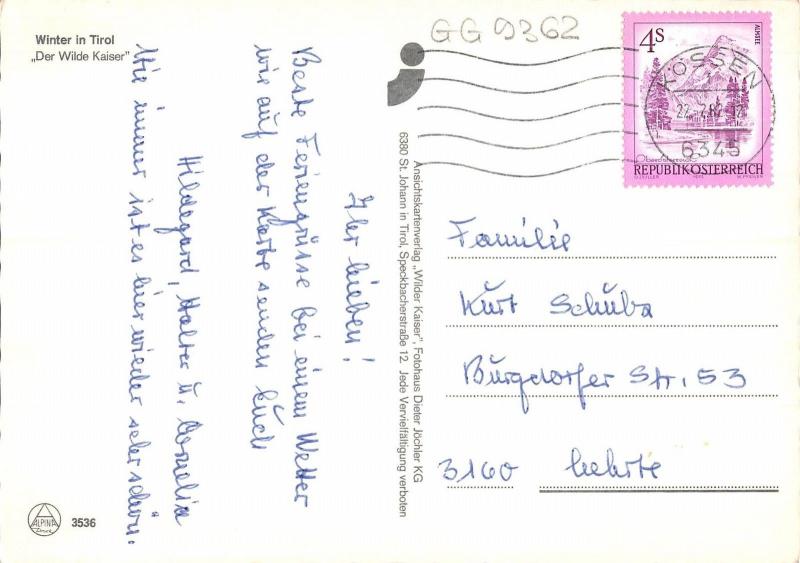 Winter in Tirol
„Der Wilde Kaiser"
GG 9362
4S
ALMSEE
Oberösterreich
REPUBLIK ÖSTERREICH
KÖSSEN
6345
Ihr Lieben!
Beste Feriengrüsse bei einem Wetter
wie auf der Karte senden Euch
Hildegard, Walter u. Cornelia
Wie immer ist es hier wieder sehr schön.
Ansichtskartenverlag „Wilder Kaiser", Fotohaus Dieter Jöchler KG
6380 St. Johann in Tirol, Speckbacherstraße 12 Jede Vervielfältigung verboten
Familie
Kurt Schuba
Burgdorfer Str. 53
3160 Lehrte
ALPINA
3536